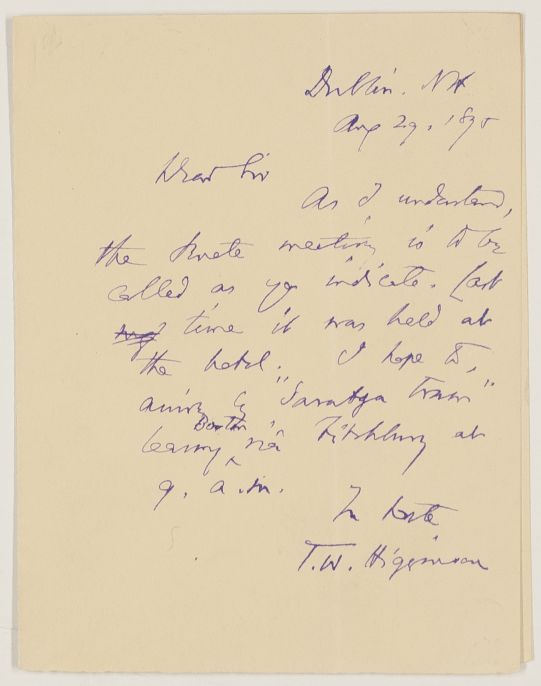 Dublin. NH
Aug 29, 1895
Dear Sir
As I understand,
the private meeting is to be
called as you indicate. Last
time it was held at
the hotel. I hope to
arrive by "Saratoga train"
leaving Boston via Fitchburg at
9. a.m.
In haste
T. W. Higginson